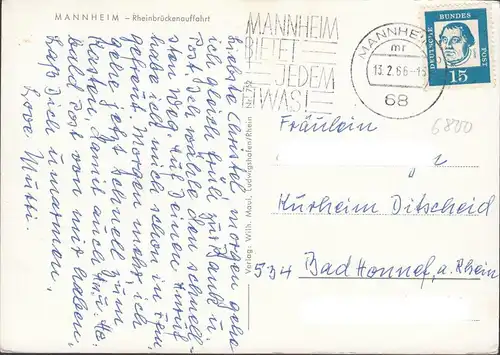 MANNHEIM – Rheinbrückenauffahrt
Liebste Christel, morgen gehe
ich gleich früh zur Bank u.
Post. Ich wähle den schnell-
sten Weg. Auf Deinen Anruf
habe ich mich schon
gefreut. Morgen mehr, ich
gehe jetzt schnell zum
Kasten, damit auch
bald Post von mir haben,
Laß Dich umarmen,
Love Mutti.
Verlag: Wilh. Maul, Ludwigshafen/Rhein Nr. 712
MANNHEIM
BIETET
JEDEM
ETWAS!
MANNHEIM
mr
13.2.66-15
68
DEUTSCHE BUNDES POST
15
6800
Fräulein
Kurheim Ditscheid
534 Bad Honnef, a. Rhein